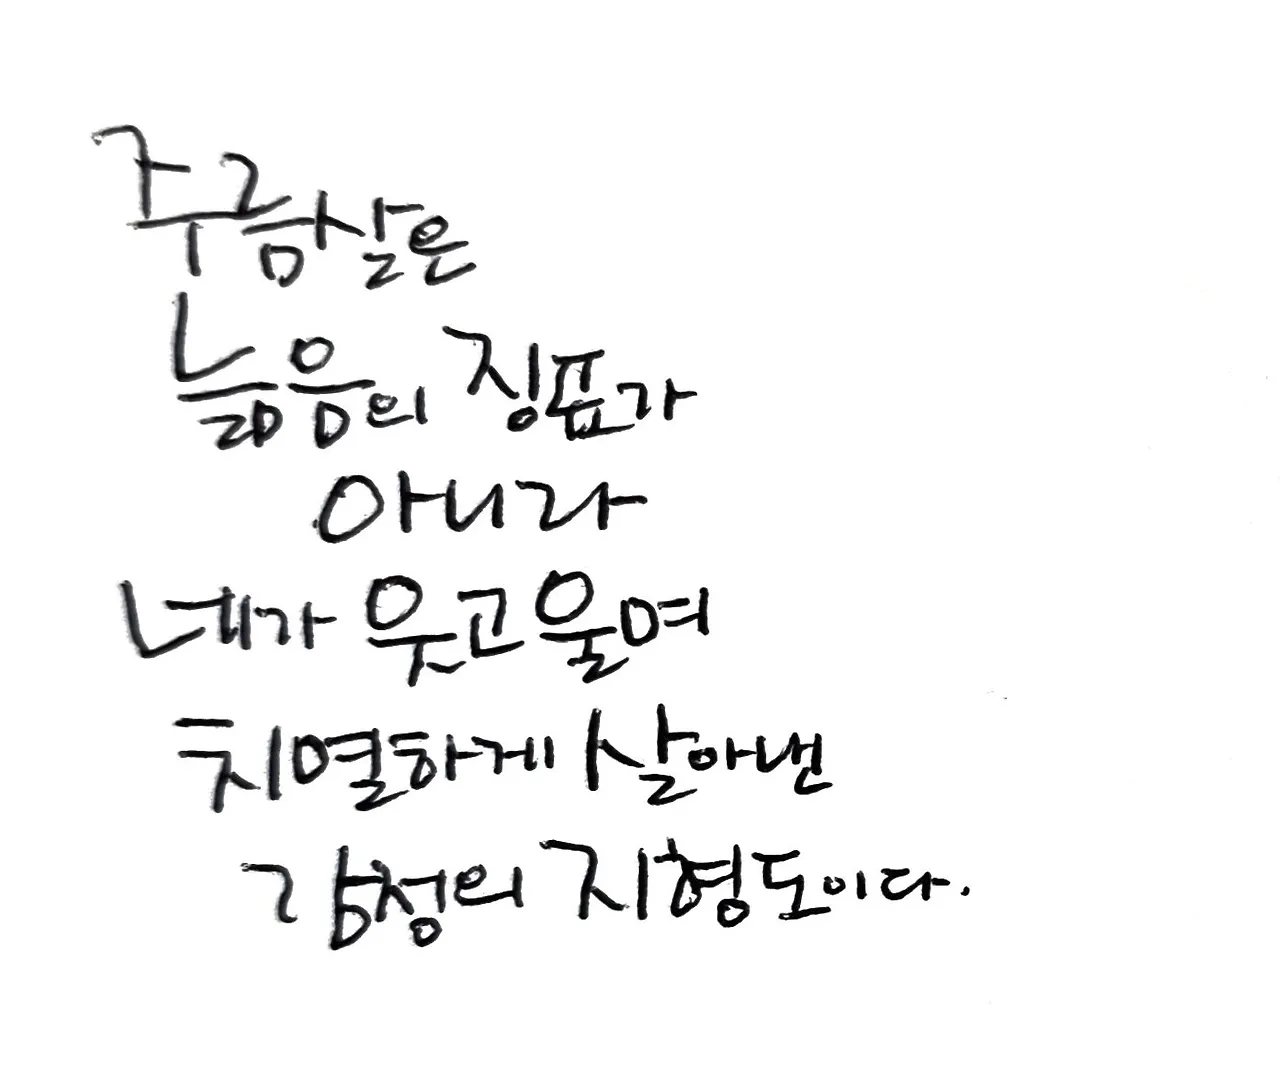 주름살은
늙음의 징표가
아니라
네가 웃고 울며
치열하게 살아낸
감정의 지형도이다.